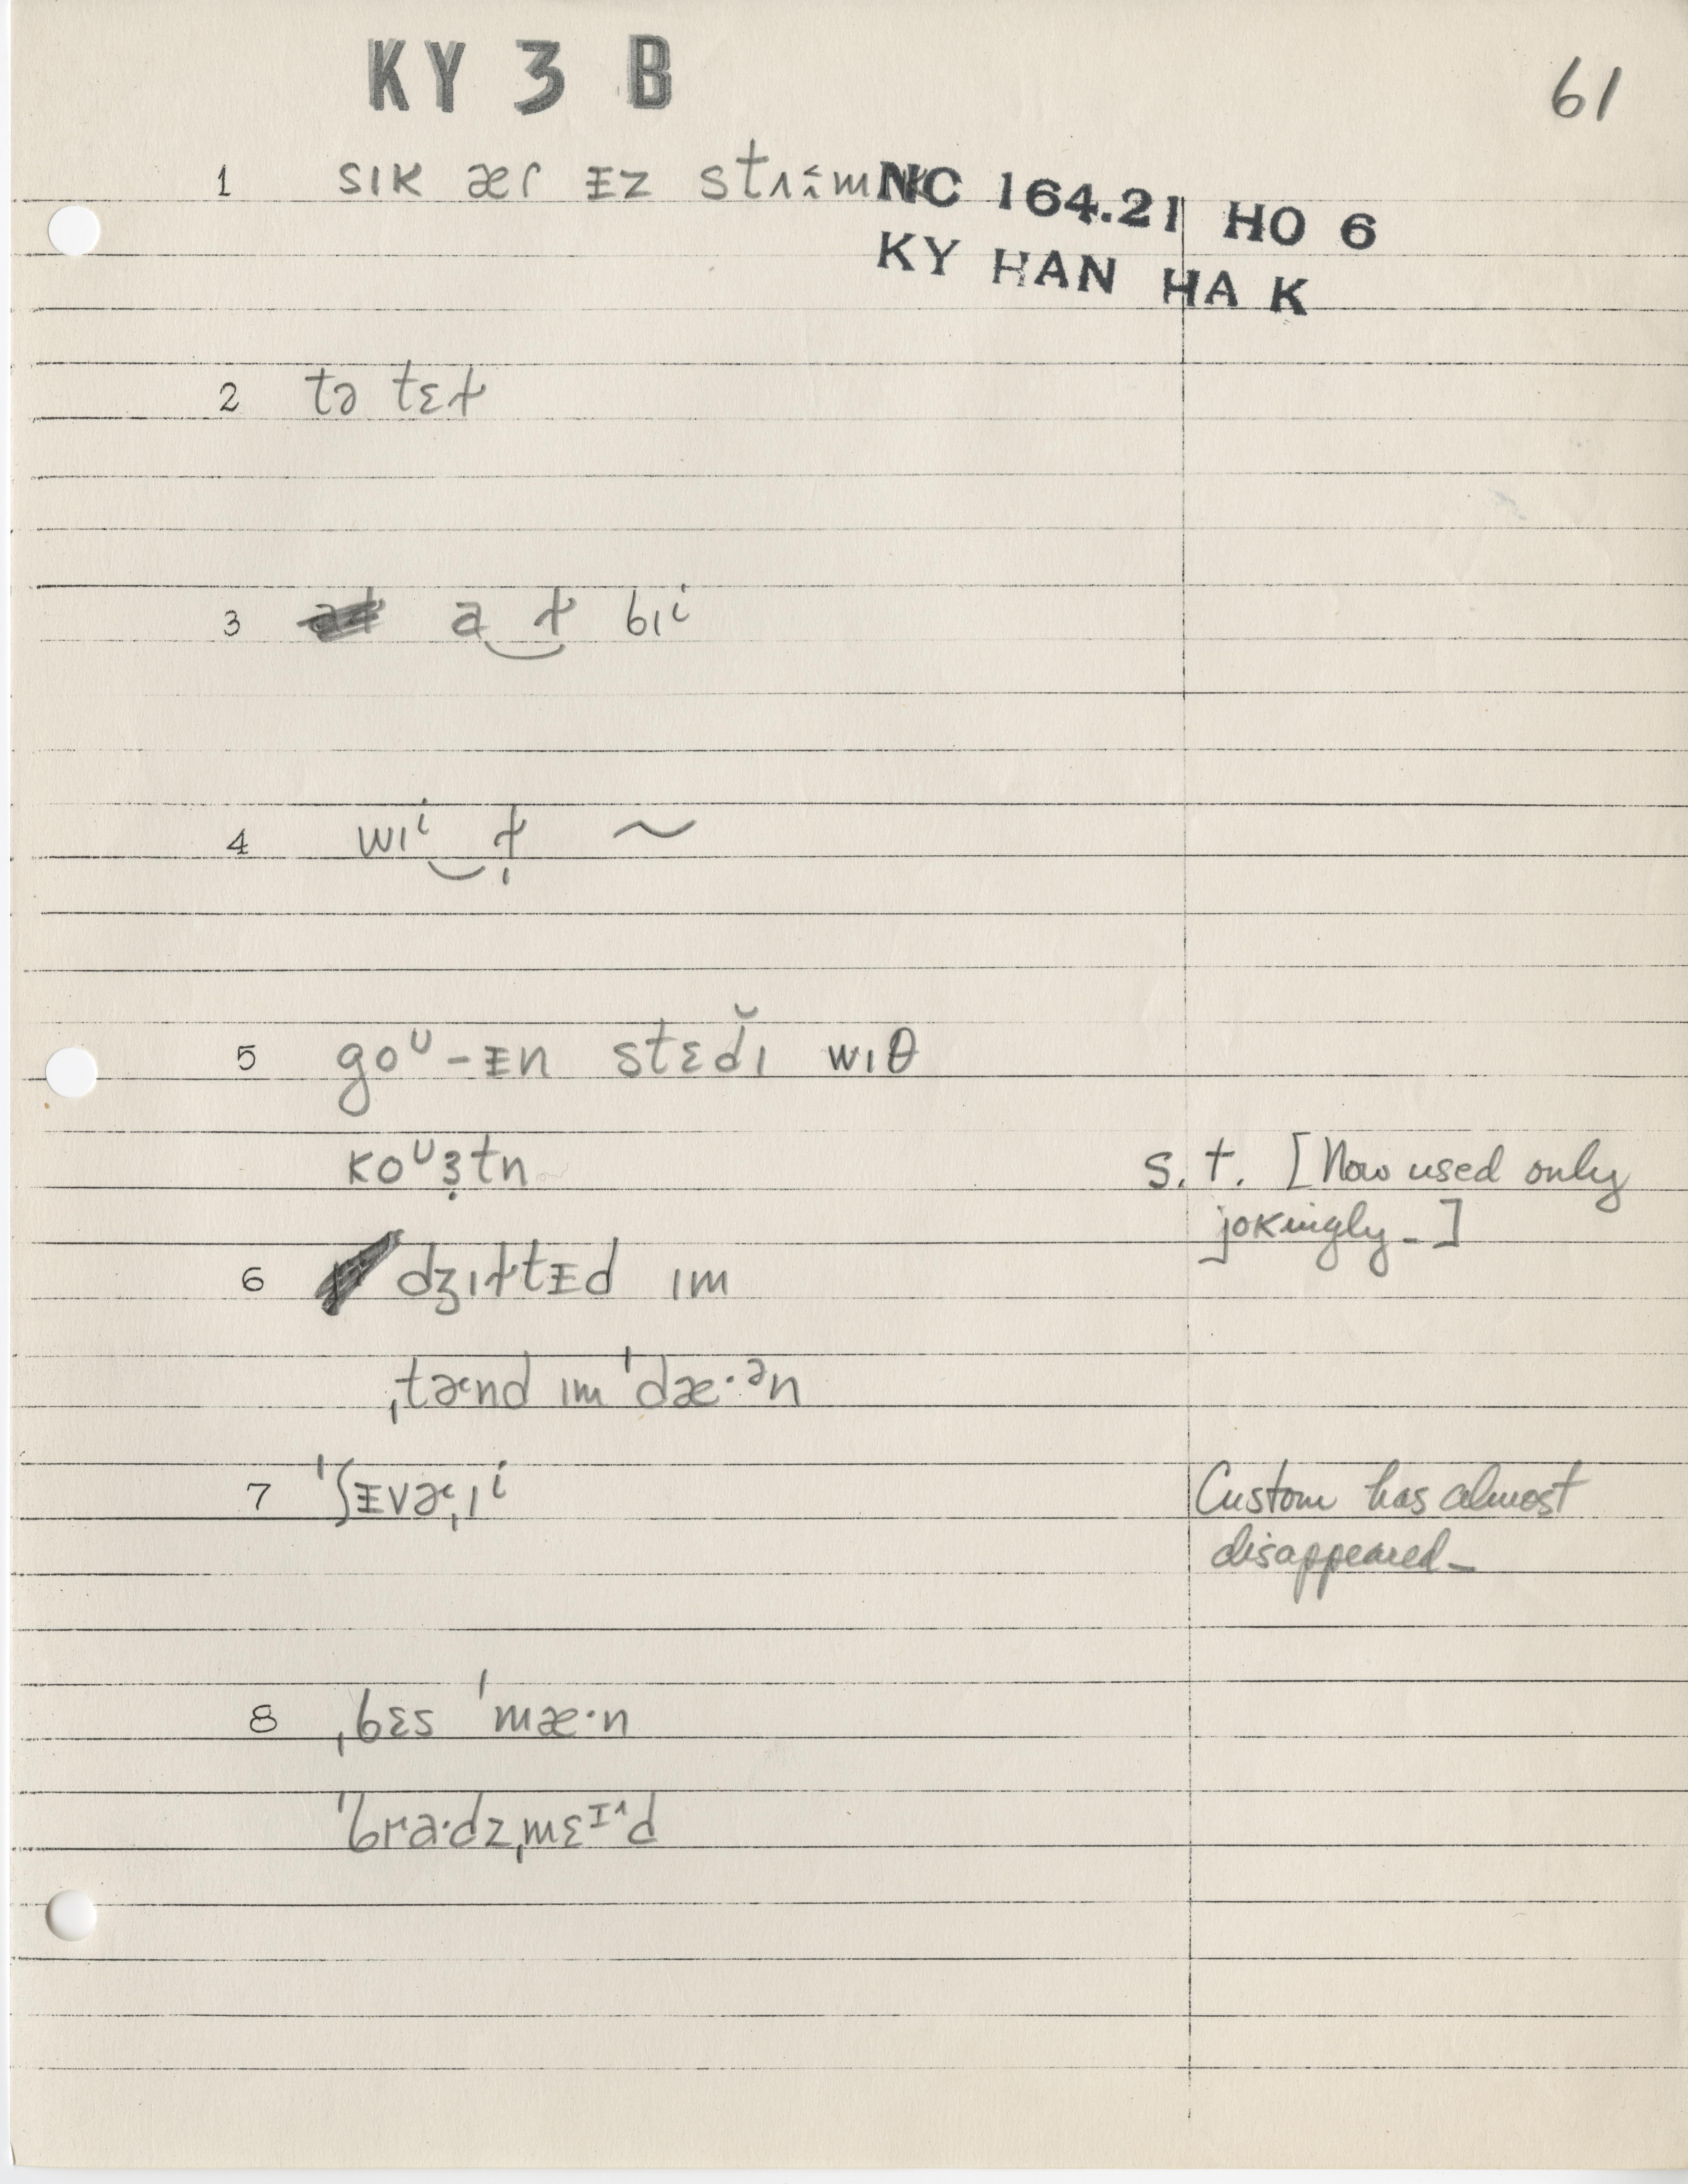 KY 3 B
61
1 sɪk æɾ ᵻz stʌim
NC 164.21 HO 6
KY HAN HA K
2 tə tɛɫ
3 a‿ɫ bɪⁱ
4 wɪⁱ‿ɫ̩ ~
5 goᶸ-ᵻn stɛd̆ɪ wɪθ
koᶸʒ̣tn
s.t. [Now used only
jokingly-]
6 dʒɪɫtᵻd ɪm
ˌtɚnd ɪm ˈdæ·ᵊn
7 ˈʃᵻvɚˌɪⁱ
Custom has almost
disappeared-
8 ˌbɛs ˈmæ·n
ˈbra·dzˌmɛᴵ^d